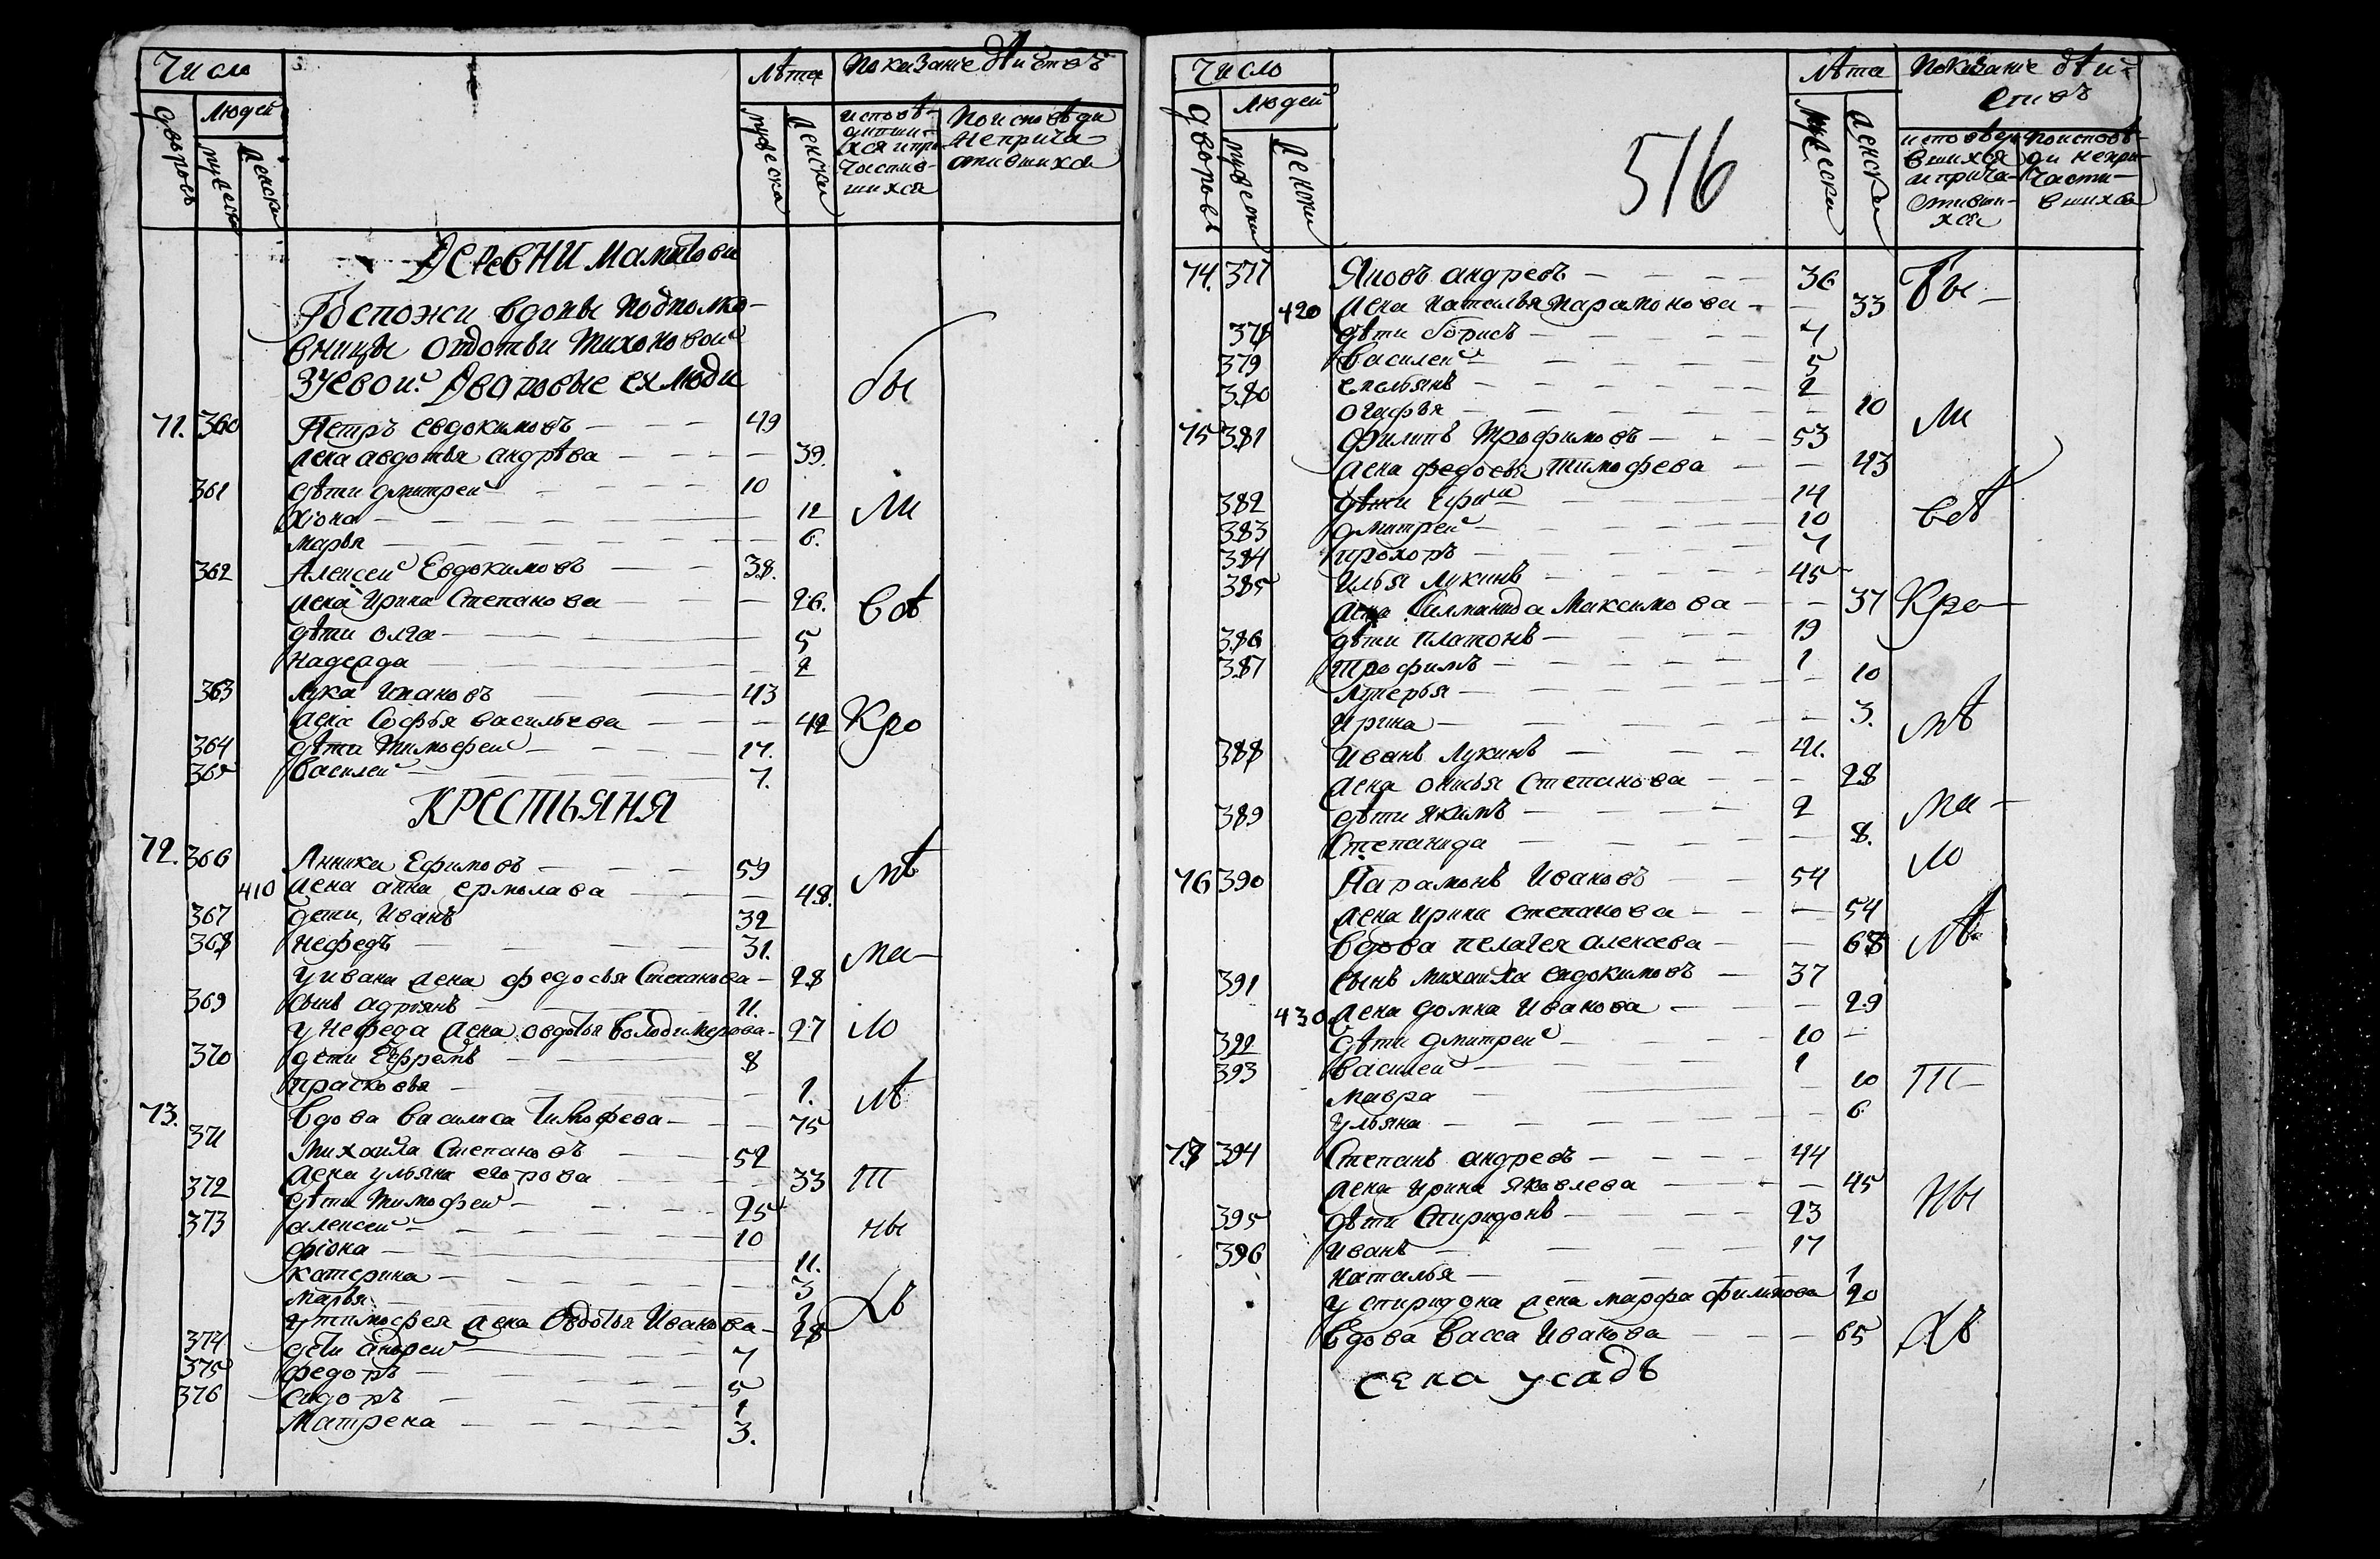 Число
Лѣта Показание дѣйствъ
дворовъ
Людей
мужеска
женска
мужеска
женска
исповѣ-
давши-
хся и при-
частив-
шихся
По исповѣди
неприча-
стившихся
Деревни Маматови
Госпожи вдовы подполко-
вницы Овдотьи Тихоновои
Зуевои Дваровые ея люди
71. 360 Петръ Евдокимовъ 49
жена авдотья андрѣва 39.
361 дѣти дмитреи 10
Хиона 12
марья 6.
362 Алексеи Евдокимовъ 38.
жена Ирина Степанова 26.
дѣти олга 5
надежда 2
363 лука Ивановъ 43
жена Софья васильева 42
364 дѣти Тимофеи 17.
365 василеи 7.
бы ли в сѣ Кро
КРЕСТЬЯНЯ
72. 366 Анника Ефимовъ 59
410 жена анна ермолава 48.
367 дети, Иванъ 32
368 нефедъ 31.
у ивана жена федосья Степанова 28
369 сынъ адриянъ 11.
у нефеда жена овдотья володимерова 27
370 дети Ефремъ 8
прасковья 1.
73. вдова василиса Тимофева 75
371 Михаила Степановъ 52
жена ульяна егорова 33
372 дѣти Тимофеи 25
373 алексеи 10
фiона 11.
катерина 3
марья 1
у тимофея жена Овдотья Иванова 28
374 дети андреи 7
375 федоръ 5
376 сидоръ 1
Матрена 3.
мѣ
ма
ло
лѣ
т
ны
хъ
Число
Лѣта Показание дѣи-
ствъ
дворовъ
Людей
мужески
женски
мужеска
женска
исповеда
вшихся
и прича-
стивши-
хся
по исповѣ-
ди непри-
части-
вшихся
516
74. 377 Яковъ андревъ 36
420 жена наталья парамонова 33
378 дѣти борисъ 7
379 василеи 5
380 емельянъ 2
огафья 10
75 381 Филипъ Трофимовъ 53
жена федосья тимофева 43
382 дѣти Ефим 14
383 дмитреи 10
384 прохоръ 7
385 Илья Лукинъ 45
жена Соломанида Максимова 37
386 дѣти платонъ 19
387 трофимъ 1
лукерья 10
ирина 3.
388 Иванъ Лукинъ 41.
жена онисья Степанова 28
389 дѣти якимъ 2
Степанида 8.
76 390 Парамонъ Ивановъ 54
жена ирина степанова 54
вдова пелагея алексева 68
391 сынъ михаила евдокимовъ 37
430 жена домна Иванова 29
392 дѣти дмитреи 10
393 василеи 1
мавра 10
ульяна 6
78 394 Степанъ андревъ 44
жена ирина яковлева 45
395 дѣти Спиридонъ 23
396 иванъ 17
наталья 1
у спиридона жена марфа филипова 20
вдова васса Иванова 65
бы
ли
всѣ
Кро
мѣ
ма
ло
лѣ
т
ны
хъ
села усадъ